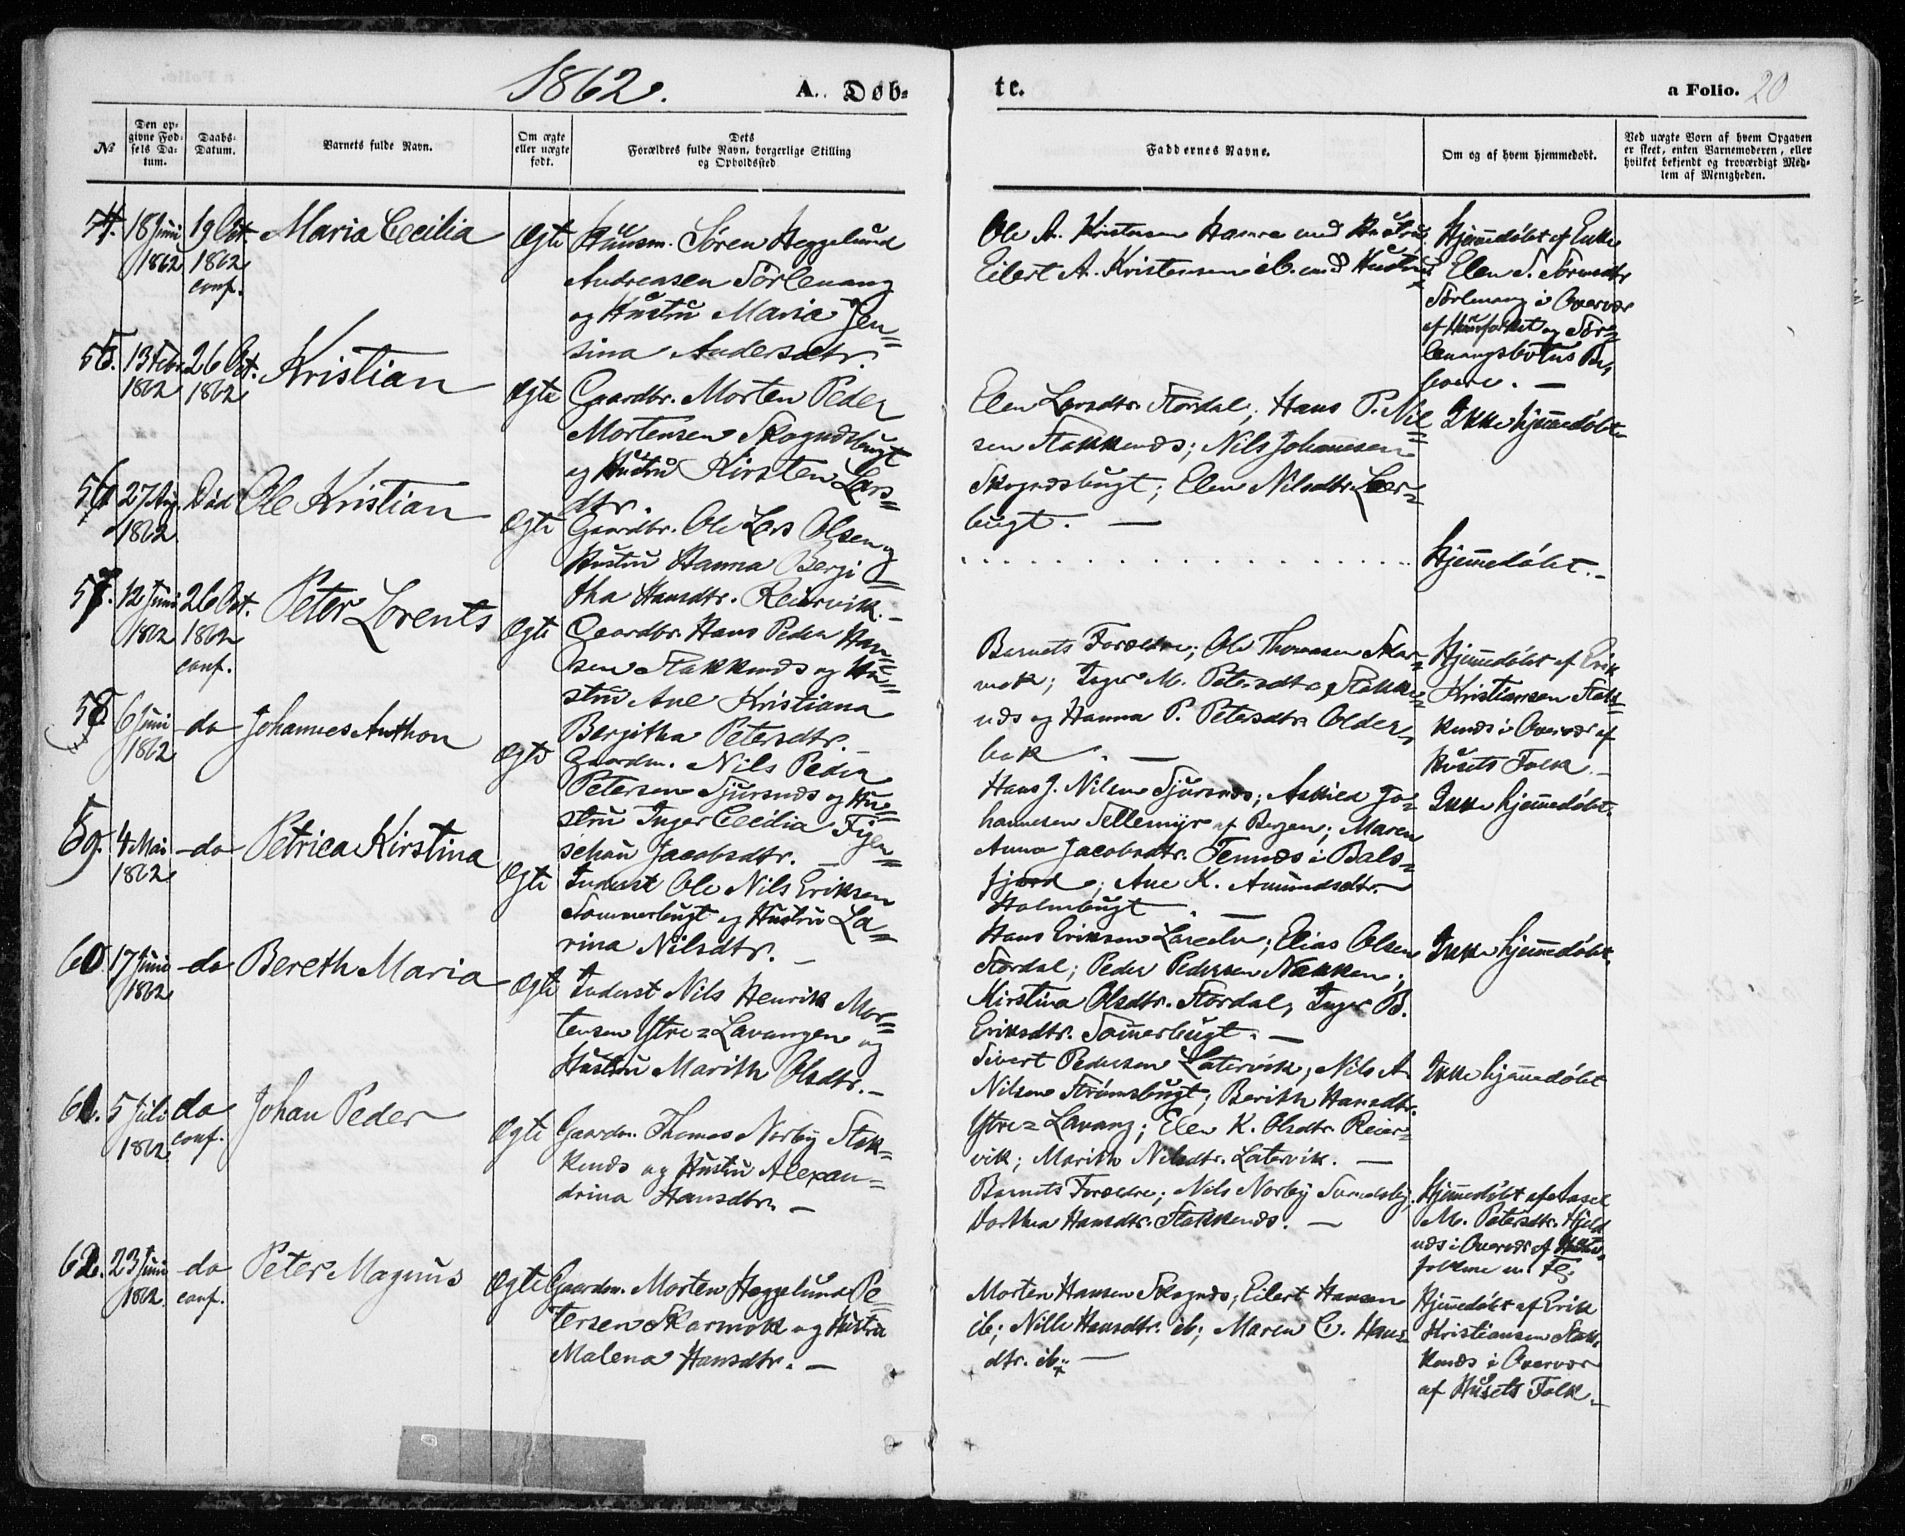 1862.
A. Døb-
te.
a Folio. 20
№
Den op-
givne Fød-
sels Da-
tum.
Daabs-
Datum.
Barnets fulde Navn.
Om ægte
eller uægte
født.
Dets
Forældres fulde Navn, borgerlige Stilling
og Opholdssted.
Faddernes Navne.
Om og af hvem hjemmedøbt.
Ved uægte Børn af hvem Opgaven
er skeet, enten Barnemoderen, eller
hvilket bekjendt og troværdigt Med-
lem af Menigheden.
54.
18 Juni
1862
19 Oct.
1862
conf.
Maria Cecilia
Ægte
Huusm. Søren Heggelund
Andreasen Sørlenang
og Hustru Maria Jen=
sina Andersdtr.
Ole A. Kristensen Hamre med Hustru
Eilert A. Kristensen ib. med Hustru
Hjemedøbt af Enke
Elen S. Sørensdtr
Sørlenang i Overvær
af Huusfolket og Sør=
lenangsbotns Be,
boere. —
55.
13 Febr.
1862
26 Oct.
1862
Kristian
Ægte
Gaardbr. Morten Peder
Mortensen Skognæsbugt
og Hustru Kirsten Lars=
dtr.
Elen Larsdtr. Stordal; Hans P. Nil=
sen Stakkenæs; Nils Johannesen
Skognæsbugt; Elen Nilsdtr. Leer=
bugt. —
Ikke hjemmedøbt
56
27 Aug.
1862
Død
Ole Kristian
Ægte
Gaardbr. Ole Lars Olsen og
Hustru Hanna Berji=
tha Hansdtr. Reiervik. —
Hjemmedøbt. —
57.
12 Juni
1862
26 Oct.
1862
conf.
Peter Lorents
Ægte
Gaardbr. Hans Peder Han=
sen Stakkenæs og Hu=
stru Ane Kristiana
Berjitha Petersdtr. —
Barnets Forældre; Ole Thomasen Skar=
mok; Inger M. Petersdtr. Stakke=
næs og Hanna P. Petersdtr. Older,
bak. —
Hjemmedøbt af Erik
Kristiansen Stak=
kenæs i Overvær af
Husets Folk. —
58
6 Juni
1862
do
Johannes Anthon
Ægte
Gaardm. Nils Peder
Petersen Sjursnæs og Hu=
stru Inger Cecilia Figen=
schau Jacobsdtr. —
Hans J. Nilsen Sjursnæs; Askild Jo=
hannesen Sellemyr af Bergen; Maren
Anna Jacobsdtr. Tennæs i Bals=
fjord; Ane K. Amundsdtr.
Holmbugt. —
Ikke hjemmedøbt.
59.
4 Mai
1862
do
Petrica Kirstina
Ægte
Inderst Ole Nils Eriksen
Sommerbugt og Hustru La=
rina Nilsdtr. —
Hans Eriksen; Elias Olsen
Stordal; Peder Pedersen Nakken;
Kirstina Olsdtr. Stordal, Inger B.
Eriksdtr. Somerbugt. —
Ikke hjemmedøbt.
60.
17 Juni
1862
do
Bereth Maria
Ægte
Inderst Nils Henrik Mor=
tensen Ytre=Lavangen og
Hustru Marith Olsdtr. —
Sivert Pedersen Latervik; Nils A.
Nilsen Strømsbugt; Berith Hansdtr.
Ytre=Lavang; Elen K. Olsdtr. Reier=
vik; Marith Nilsdtr. Latervik. —
Ikke hjemedøbt
61.
5 Juli
1862
do
conf.
Johan Peder
Ægte
Gaardm. Thomas Norby Stak=
kenæs og Hustru Alexan=
drina Hansdtr. —
Barnets Forældre; Nils Norby Svendsby,
Dorthea Hansdtr. Stakkenæs. —
Hjemedøbt af Aasel
M. Petersdtr. Hjeld
næs i Overvær af
folkene
62.
23 Juni
1862
do
conf.
Peter Magnus
Ægte
Gaardm. Morten Heggelund Pe=
tersen Skarmok og Hustru
Malena Hansdtr. —
Morten Hansen Skognæs; Eilert Hansen
ib; Nille Hansdtr. ib; Maren C. Hans=
dtr. ib. —
Hjemmedøbt af Erik
Kristiansen Stak,
kenæs i Overvær
af Husets Folk. —